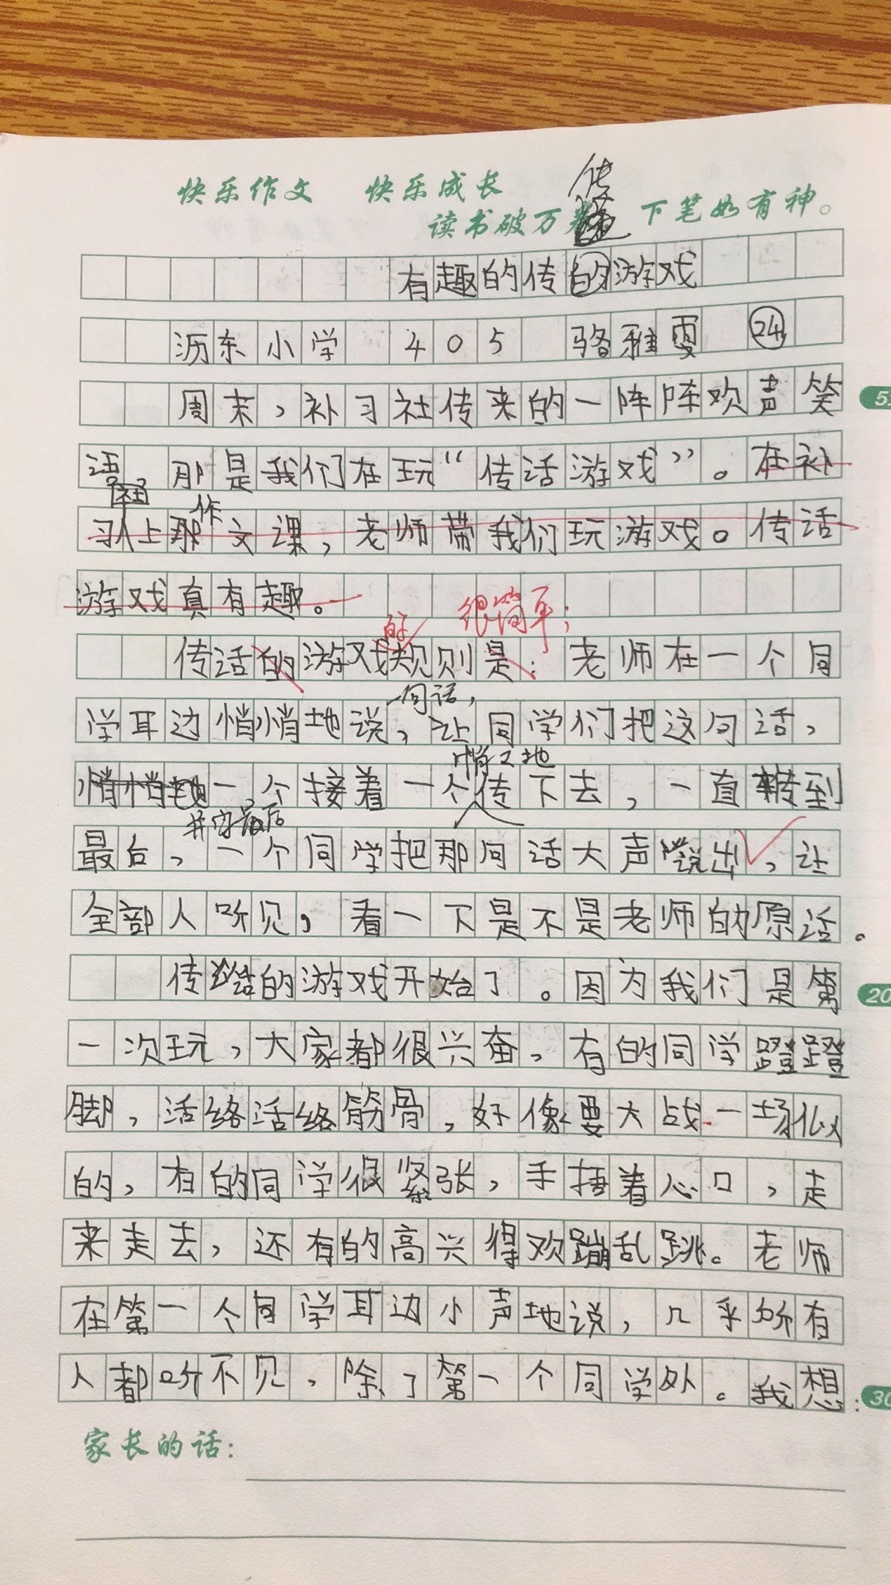 快乐作文 快乐成长
传
读书破万卷 下笔如有神。
有趣的传的游戏
沥东小学 405 骆雅雯 24
周末，补习社传来的一阵阵欢声笑
语 那是我们在玩“传话游戏”。在补
作
习社上那文课，老师带我们玩游戏。传话
游戏真有趣。
的 很简单；
传话的游戏规则是：老师在一个同
一句话，
学耳边悄悄地说，让同学们把这句话，
悄悄地
悄悄地一个接着一个传下去，一直转到
最后，一个同学把那句话大声说出，让
全部人听见，看一下是不是老师的原话。
传话的游戏开始了。因为我们是第
一次玩，大家都很兴奋，有的同学蹬蹬
脚，活络活络筋骨，好像要大战一场似
的，有的同学很紧张，手捂着心口，走
来走去，还有的高兴得欢蹦乱跳。老师
在第一个同学耳边小声地说，几乎所有
人都听不见，除了第一个同学外。我想：
家长的话：